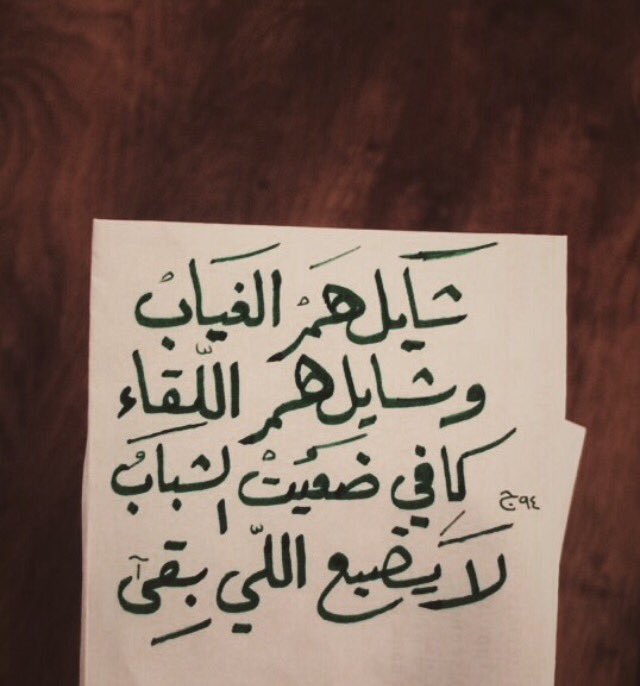 شَايل هَمْ الغيَابْ
وشايل هم اللّقاء
كافي ضعَيتْ الشبابْ
لاَ يَضيع اللّي بقِىٓ
ج٩٤